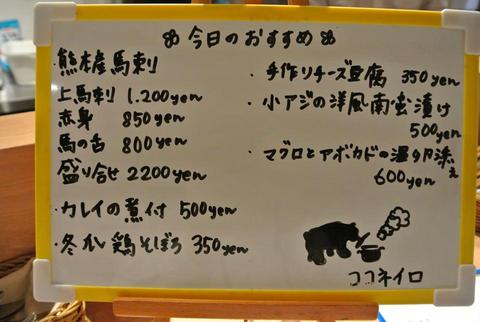 今日のおすすめ
・熊本産馬刺
上馬刺 1.200yen
赤身 850yen
馬の舌 800yen
盛り合せ 2200yen
・カレイの煮付 500yen
・冬瓜 鶏そぼろ 350yen
・手作りチーズ豆腐 350yen
・小アジの洋風南蛮漬け
500yen
・マグロとアボカドの温卵添え
600yen
ココネイロ